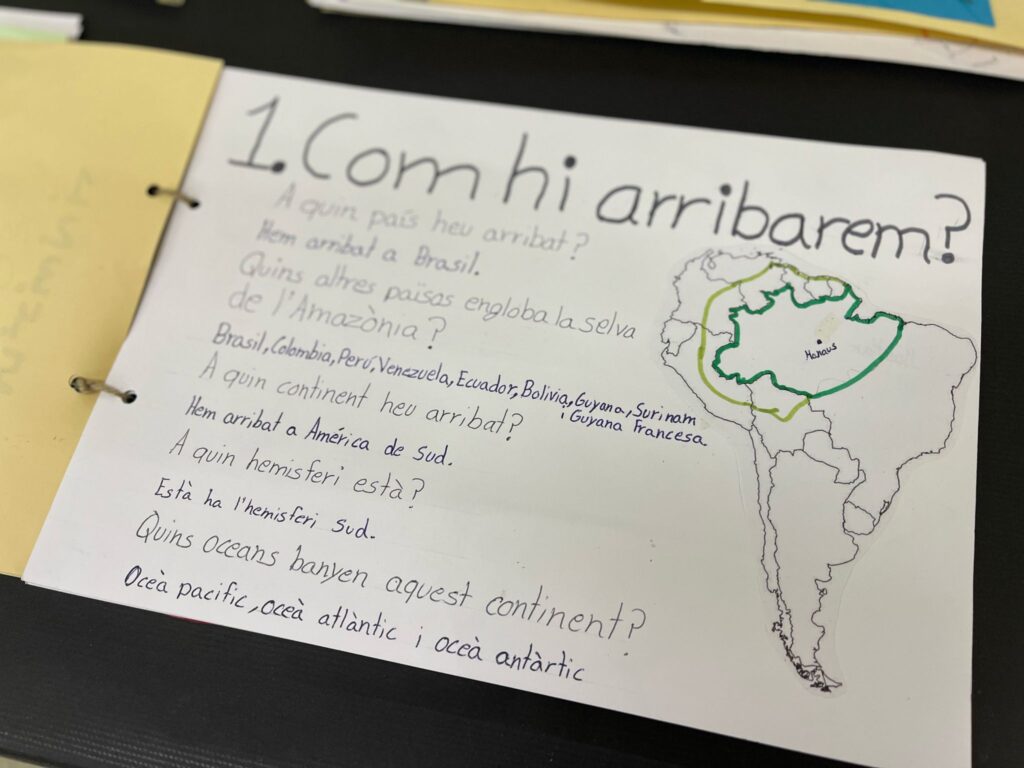 1. Com hi arribarem?
A quin país heu arribat?
Hem arribat a Brasil.
Quins altres països engloba la selva
de l'Amazònia?
Brasil, Colombia, Perú, Venezuela, Ecuador, Bolivia, Guyana, Surinam
i Guyana Francesa
A quin continent heu arribat?
Hem arribat a América de Sud.
A quin hemisferi està?
Està ha l'hemisferi sud.
Quins oceans banyen aquest continent?
Oceà pacific, oceà atlàntic i oceà antàrtic
Manaus